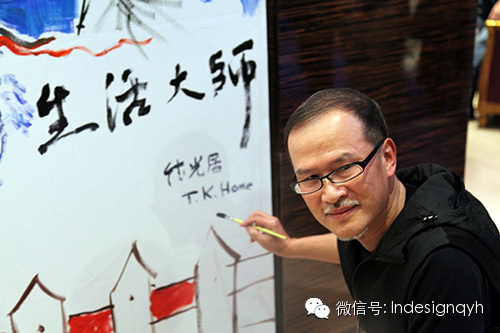 生活大师
代光居
T.K.Home
微信号: Indesignqyh